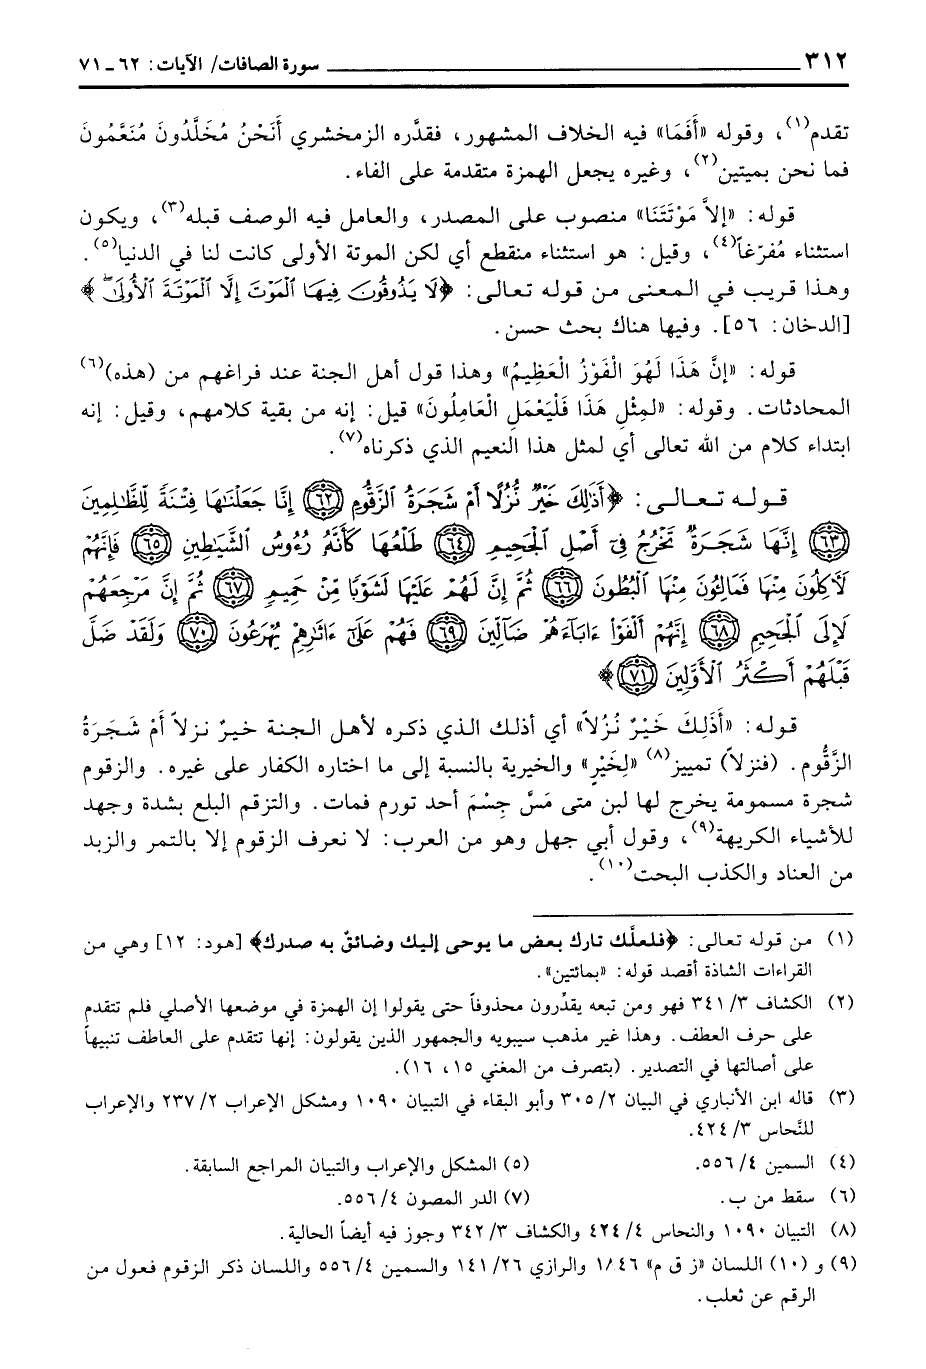 ٣١٢ سورة الصافات/ الآيات: ٦٢ ـ ٧١
تقدم(١)، وقوله «أَفَمَا» فيه الخلاف المشهور، فقدَّره الزمخشري أَنَحْنُ مُخَلَّدُونَ مُنَعَّمُونَ
فما نحن بميتين(٢)، وغيره يجعل الهمزة متقدمة على الفاء.
قوله: «إلاَّ مَوْتَتَنَا» منصوب على المصدر، والعامل فيه الوصف قبله(٣)، ويكون
استثناء مُفرّغاً(٤)، وقيل: هو استثناء منقطع أي لكن الموتة الأولى كانت لنا في الدنيا(٥).
وهذا قريب في المعنى من قوله تعالى: ﴿لَا يَذُوقُونَ فِيهَا الْمَوْتَ إِلَّا الْمَوْتَةَ الْأُولَىٰ﴾
[الدخان: ٥٦]. وفيها هناك بحث حسن.
قوله: «إنَّ هَذَا لَهُوَ الْفَوْزُ الْعَظِيمُ» وهذا قول أهل الجنة عند فراغهم من (هذه)(٦)
المحادثات. وقوله: «لمِثْلِ هَذَا فَلْيَعْمَلِ الْعَامِلُونَ» قيل: إنه من بقية كلامهم، وقيل: إنه
ابتداء كلام من الله تعالى أي لمثل هذا النعيم الذي ذكرناه(٧).
قوله تعالى: ﴿أَذَٰلِكَ خَيْرٌ نُّزُلًا أَمْ شَجَرَةُ الزَّقُّومِ ٦٢ إِنَّا جَعَلْنَاهَا فِتْنَةً لِّلظَّالِمِينَ
٦٣ إِنَّهَا شَجَرَةٌ تَخْرُجُ فِي أَصْلِ الْجَحِيمِ ٦٤ طَلْعُهَا كَأَنَّهُ رُءُوسُ الشَّيَاطِينِ ٦٥ فَإِنَّهُمْ
لَآكِلُونَ مِنْهَا فَمَالِئُونَ مِنْهَا الْبُطُونَ ٦٦ ثُمَّ إِنَّ لَهُمْ عَلَيْهَا لَشَوْبًا مِّنْ حَمِيمٍ ٦٧ ثُمَّ إِنَّ مَرْجِعَهُمْ
لَإِلَى الْجَحِيمِ ٦٨ إِنَّهُمْ أَلْفَوْا ءَابَاءَهُمْ ضَالِّينَ ٦٩ فَهُمْ عَلَىٰ ءَاثَارِهِمْ يُهْرَعُونَ ٧٠ وَلَقَدْ ضَلَّ
قَبْلَهُمْ أَكْثَرُ الْأَوَّلِينَ ٧١﴾
قوله: «أَذَلِكَ خَيْرٌ نُزُلاً» أي أذلك الذي ذكره لأهل الجنة خيرٌ نزلاً أَمْ شَجَرَةُ
الزَّقُّوم. (فنزلاً) تمييز(٨) «لِخَيْرٍ» والخيرية بالنسبة إلى ما اختاره الكفار على غيره. والزقوم
شجرة مسمومة يخرج لها لبن متى مَسَّ جِسْمَ أحد تورم فمات. والتزقم البلع بشدة وجهد
للأشياء الكريهة(٩)، وقول أبي جهل وهو من العرب: لا نعرف الزقوم إلا بالتمر والزبد
من العناد والكذب البحت(١٠).
(١) من قوله تعالى: ﴿فلعلَّك تارك بعض ما يوحى إليك وضائقٌ به صدرك﴾ [هود: ١٢] وهي من
القراءات الشاذة أقصد قوله: «بمائتين».
(٢) الكشاف ٣/ ٣٤١ فهو ومن تبعه يقدِّرون محذوفاً حتى يقولوا إن الهمزة في موضعها الأصلي فلم تتقدم
على حرف العطف. وهذا غير مذهب سيبويه والجمهور الذين يقولون: إنها تتقدم على العاطف تنبيهاً
على أصالتها في التصدير. (بتصرف من المغني ١٥، ١٦).
(٣) قاله ابن الأنباري في البيان ٢/ ٣٠٥ وأبو البقاء في التبيان ١٠٩٠ ومشكل الإعراب ٢/ ٢٣٧ والإعراب
للنَّحاس ٣/ ٤٢٤.
(٤) السمين ٤/ ٥٥٦. (٥) المشكل والإعراب والتبيان المراجع السابقة.
(٦) سقط من ب. (٧) الدر المصون ٤/ ٥٥٦.
(٨) التبيان ١٠٩٠ والنحاس ٤/ ٤٢٤ والكشاف ٣/ ٣٤٢ وجوز فيه أيضاً الحالية.
(٩) و (١٠) اللسان «ز ق م» ١٨٤٦ والرازي ٢٦/ ١٤١ والسمين ٤/ ٥٥٦ واللسان ذكر الزقوم فعول من
الرقم عن ثعلب.